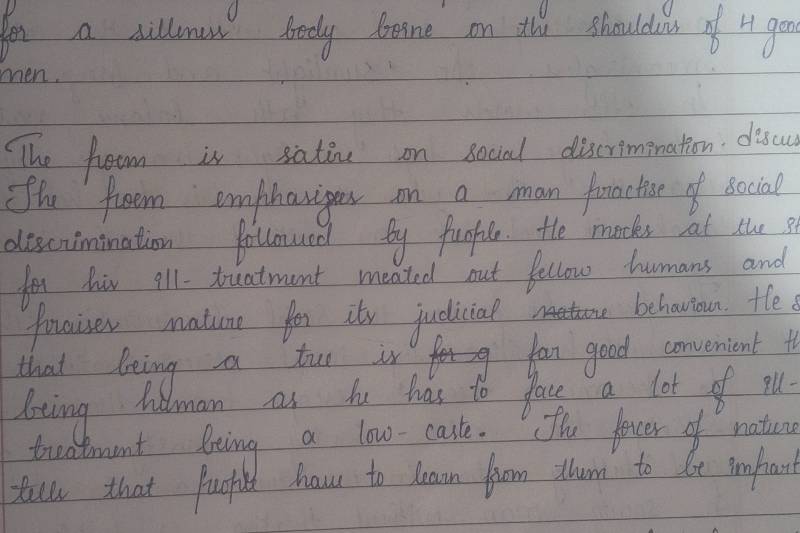 for a silleness body borne on the shoulders of 4 good
men.
The poem is satire on social discrimination. discus
The poem emphasizes on a man practise of social
discrimination followed by people. He mocks at the
for his ill-treatment meated out fellow humans and
praises nature for its judicial nature behaviour. He
that being a tree is for g far good convenient th
being human as he has to face a lot of ill-
treatment being a low-caste. The forces of nature
tells that people have to learn from them to be impart